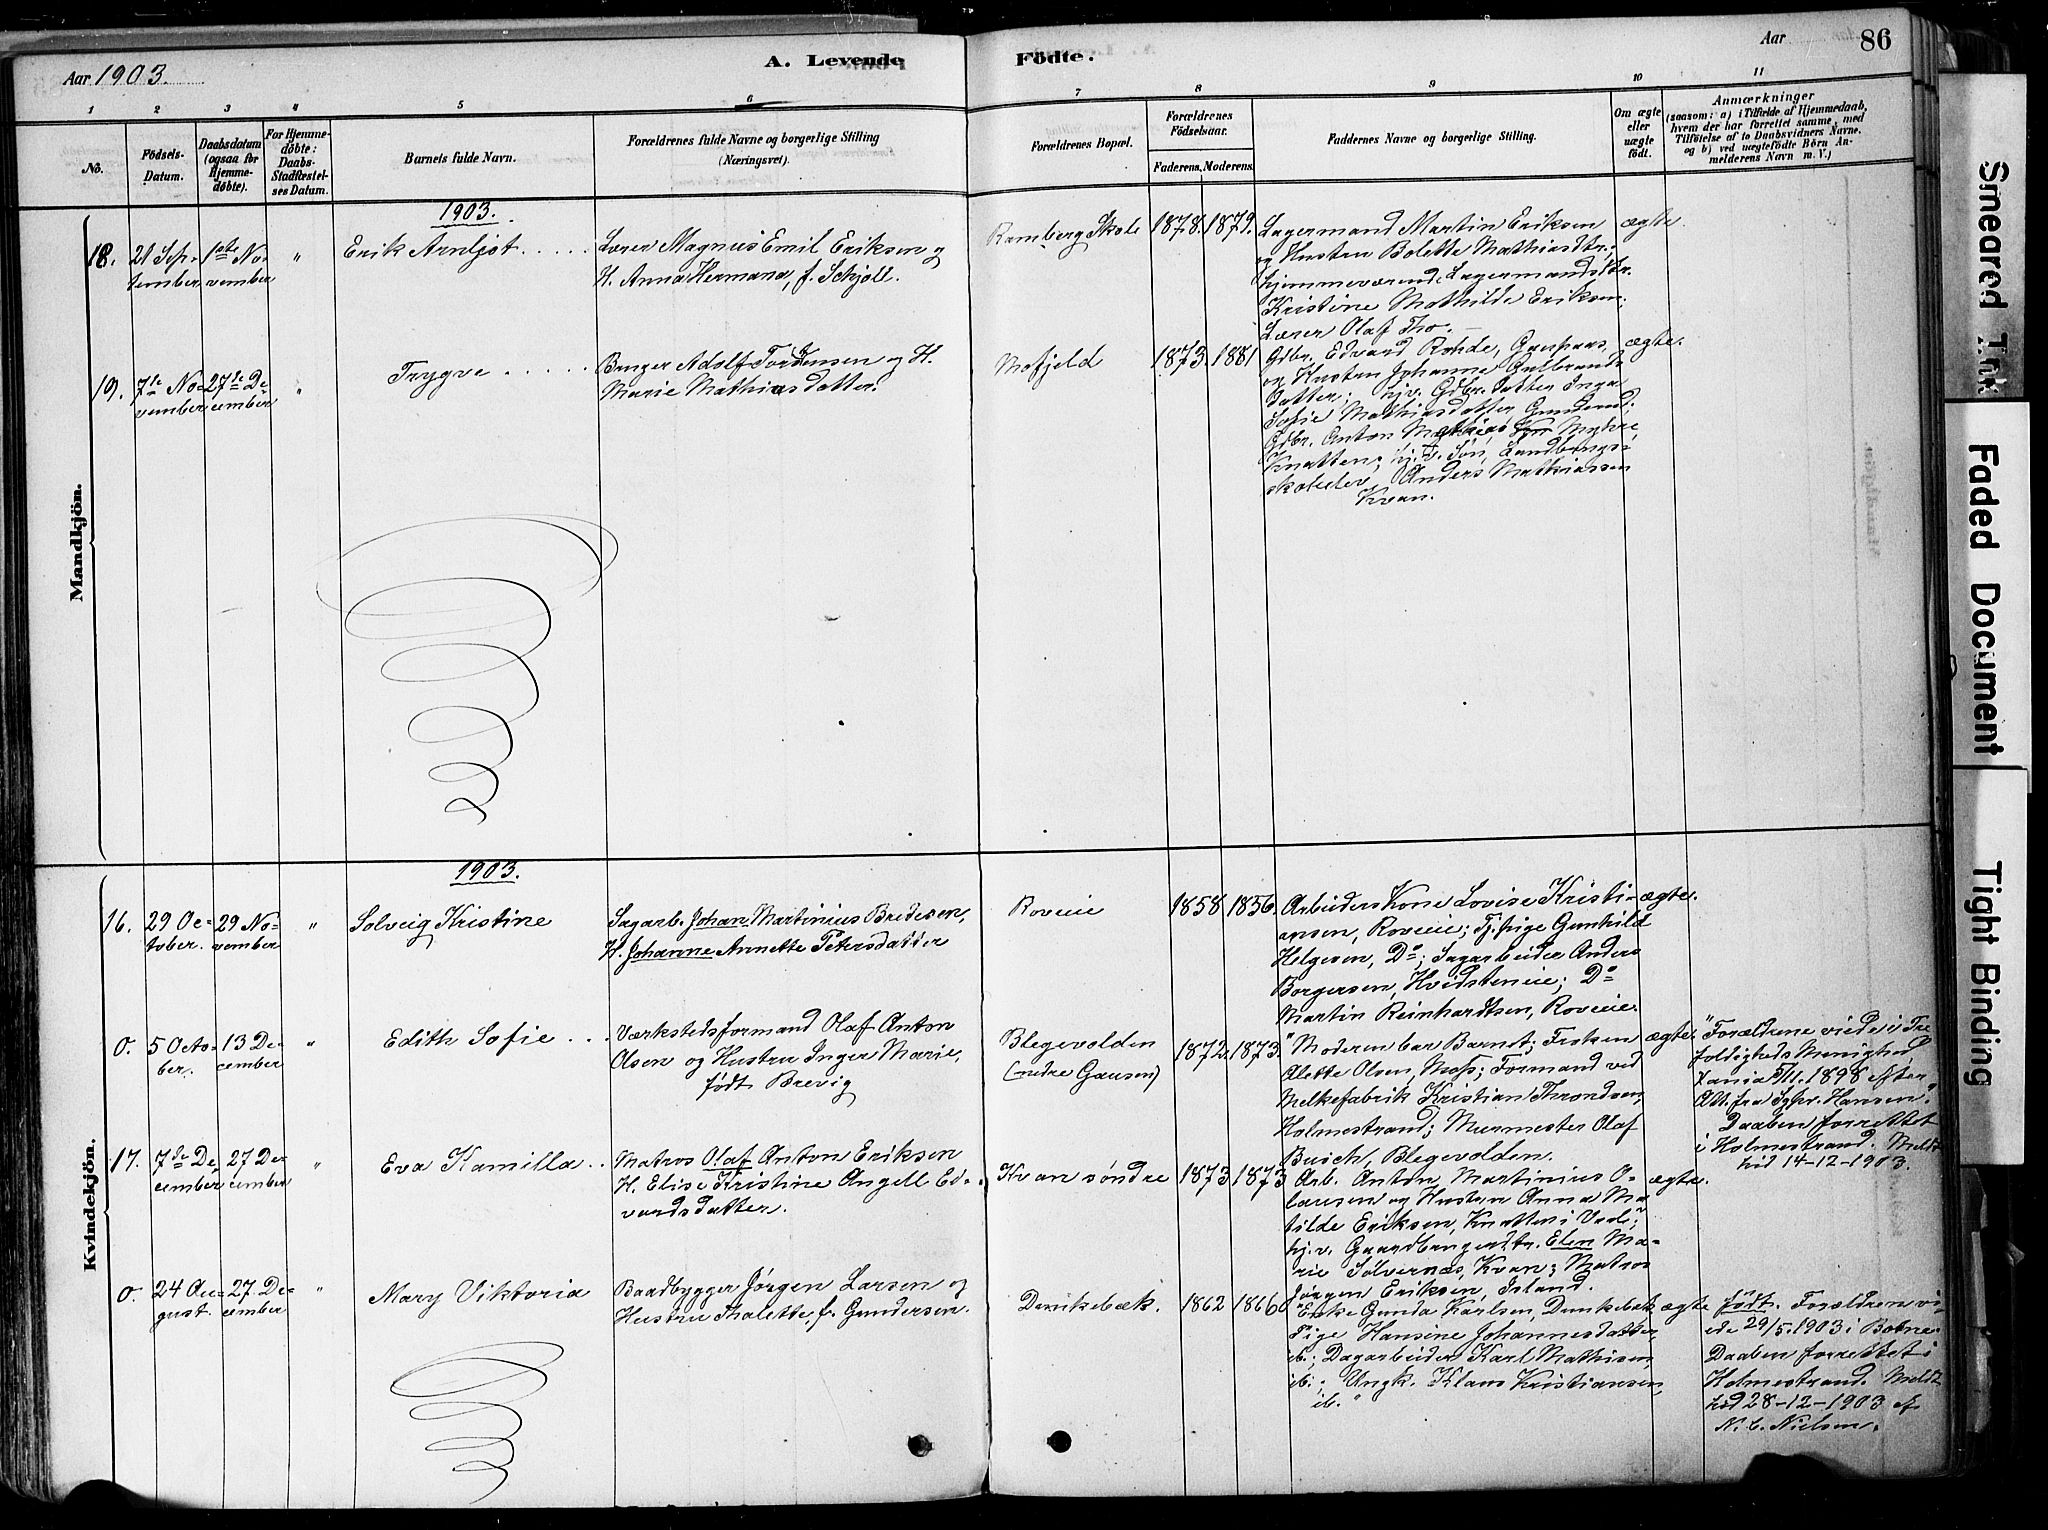 Aar 1903.
A. Levende
Födte.
Aar
86
1
2
3
4
5
6
7
8
9
10
11
No.
Födsels-
Datum.
Daabsdatum
(ogsaa for
Hjemme-
døbte).
For Hjemme-
döbte:
Daabs-
Stadfæstel-
ses Datum.
Barnets fulde Navn.
Forældrenes fulde Navne og borgerlige Stilling
(Næringsvei).
Forældrenes Bopæl.
Forældrenes
Födselsaar.
Faderens.
Moderens.
Faddernes Navne og borgerlige Stilling.
Om ægte
eller
uægte
født.
Anmærkninger
(saasom: a) i Tilfælde af Hjemmedaab,
hvem der har forrettet samme, med
Tilföielse af to Daabsvidners Navne.
og b) ved uægtefödte Börn An-
melderens Navn m. V.)
Mandkjön.
1903.
18.
21 Sep-
tember
1ste No-
vember
"
Erik Arnljot.....
Lærer Magnus Emil Eriksen og
H. Anna Hermana, f. Schjöll.
Ramberg Skole
1878.
1879.
Lagermand Martin Eriksen
og Hustru Bolette Mathiasdtr;
hjemmeværende Lagermandsdtr.
Kristine Mathilde Eriksen;
Lærer Olaf Tho.
ægte.
19.
7de No-
vember
27de De
cember
"
Trygve.....
Bruger Adolf Tordensen og H.
Marie Mathiasdatter.
Mofjeld
1873.
1881
Gdbr. Edvard Rohde, Gaupaas,
og Hustru Johanne Gulbrands
datter; hjv. Gdbr. datter Inga
Sofie Mathiasdatter Grnderud;
Gdbr. Anton Mathias Myhre
Knatten; hj. v. Søn, Landbrugs-
skoleelev Anders Mathiassen
Kvan.
ægte.
Kvindekjön.
1903.
16.
29 Oc-
tober.
29 No-
vember
"
Solveig Kristine
Sagarb. Johan Martinius Bredesen,
H. Johanne Annette Petersdatter
Roveie
1858
1856.
Arbeiders Kone Lovise Kristi-
ansen, Roveie; Tj. Pige Gunhild
Helgesen, Do; Sagarbeider Anders
Borgersen, Hvidsteneie; Do
Martin Reinhardtsen, Roveie.
ægte.
0.
5 Octo-
ber.
13 De-
cember
"
Edith Sofie...
Værkstedsformand Olaf Anton
Olsen og Hustru Inger Marie,
født Brevig
Blegevolden
(nedre Gausen)
1872.
1873.
"Moderen bar Barnet; Frøken
Alette Olsen, Moss; Formand ved
Melkefabrik Kristian Throndsen,
Holmestrand; Murmester Olaf
Busch, Blegevolden.
ægte.
"Forældrene viede i Tre
foldigheds Menighed
Xania 5/11. 1898 efter
Att. fra Sgpr. Hansen."
Daaben forrettet
i Holmestrand. Meldt
hid 14-12-1903.
17.
7de De-
cember
27 De-
cember
"
Eva Kamilla..
Matros Olaf Anton Eriksen
H. Elise Kristine Angell Ed-
vardsdatter.
Kvan søndre
1873
1873
Arb. Anton Martinius O-
lausen og Hustru Anna Ma-
tilde Eriksen, Knatten i Vaale;
hj. v. Gaardbrugerdtr. Elen Ma-
rie Sølvernæs, Kvan; Matros
Jørgen Eriksen, Island.
ægte.
0.
24 Au-
gust.
27 De-
cember
"
Mary Viktoria
Baadbygger Jörgen Larsen og
Hustru Thalette, f. Gundersen.
Dunkebæk.
1862
1866
"Enke Gunda Karlsen, Dunkebæk
Pige Hansine Johannesdatter,
ib.; Dagarbeider Karl Mathisen,
ib.; Ungk. Klaus Kristiansen,
ib."
ægte
født. Forældren vi-
ede 29/5. 1903 i Botne.
Daaben forrettet i
Holmestrand. Meldt
hid 28-12-1903 af
N. C. Nielsen.
Smeared Ink
Faded Document
Tight Binding